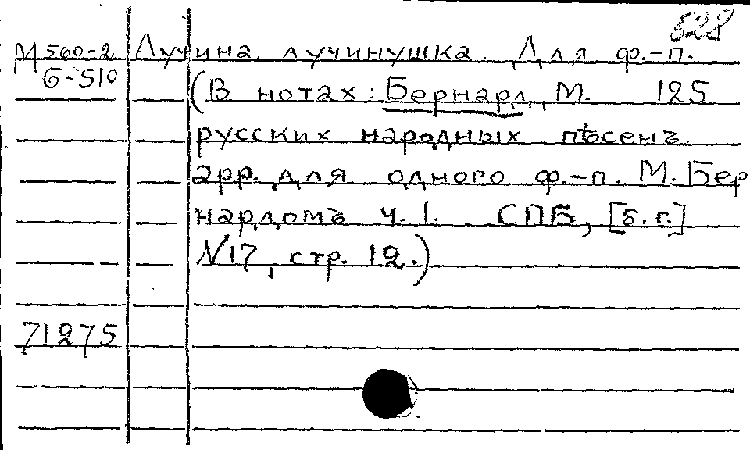 828
М 560-2 Лучина лучинушка. Для ф.-п.
Б-510
(В нотах: Бернард, М. 125
русских народных пѣсенъ
арр. для одного ф.-п. М. Бер
нардомъ ч. 1. СПБ, [б. г.]
N17, стр. 12.)
71275